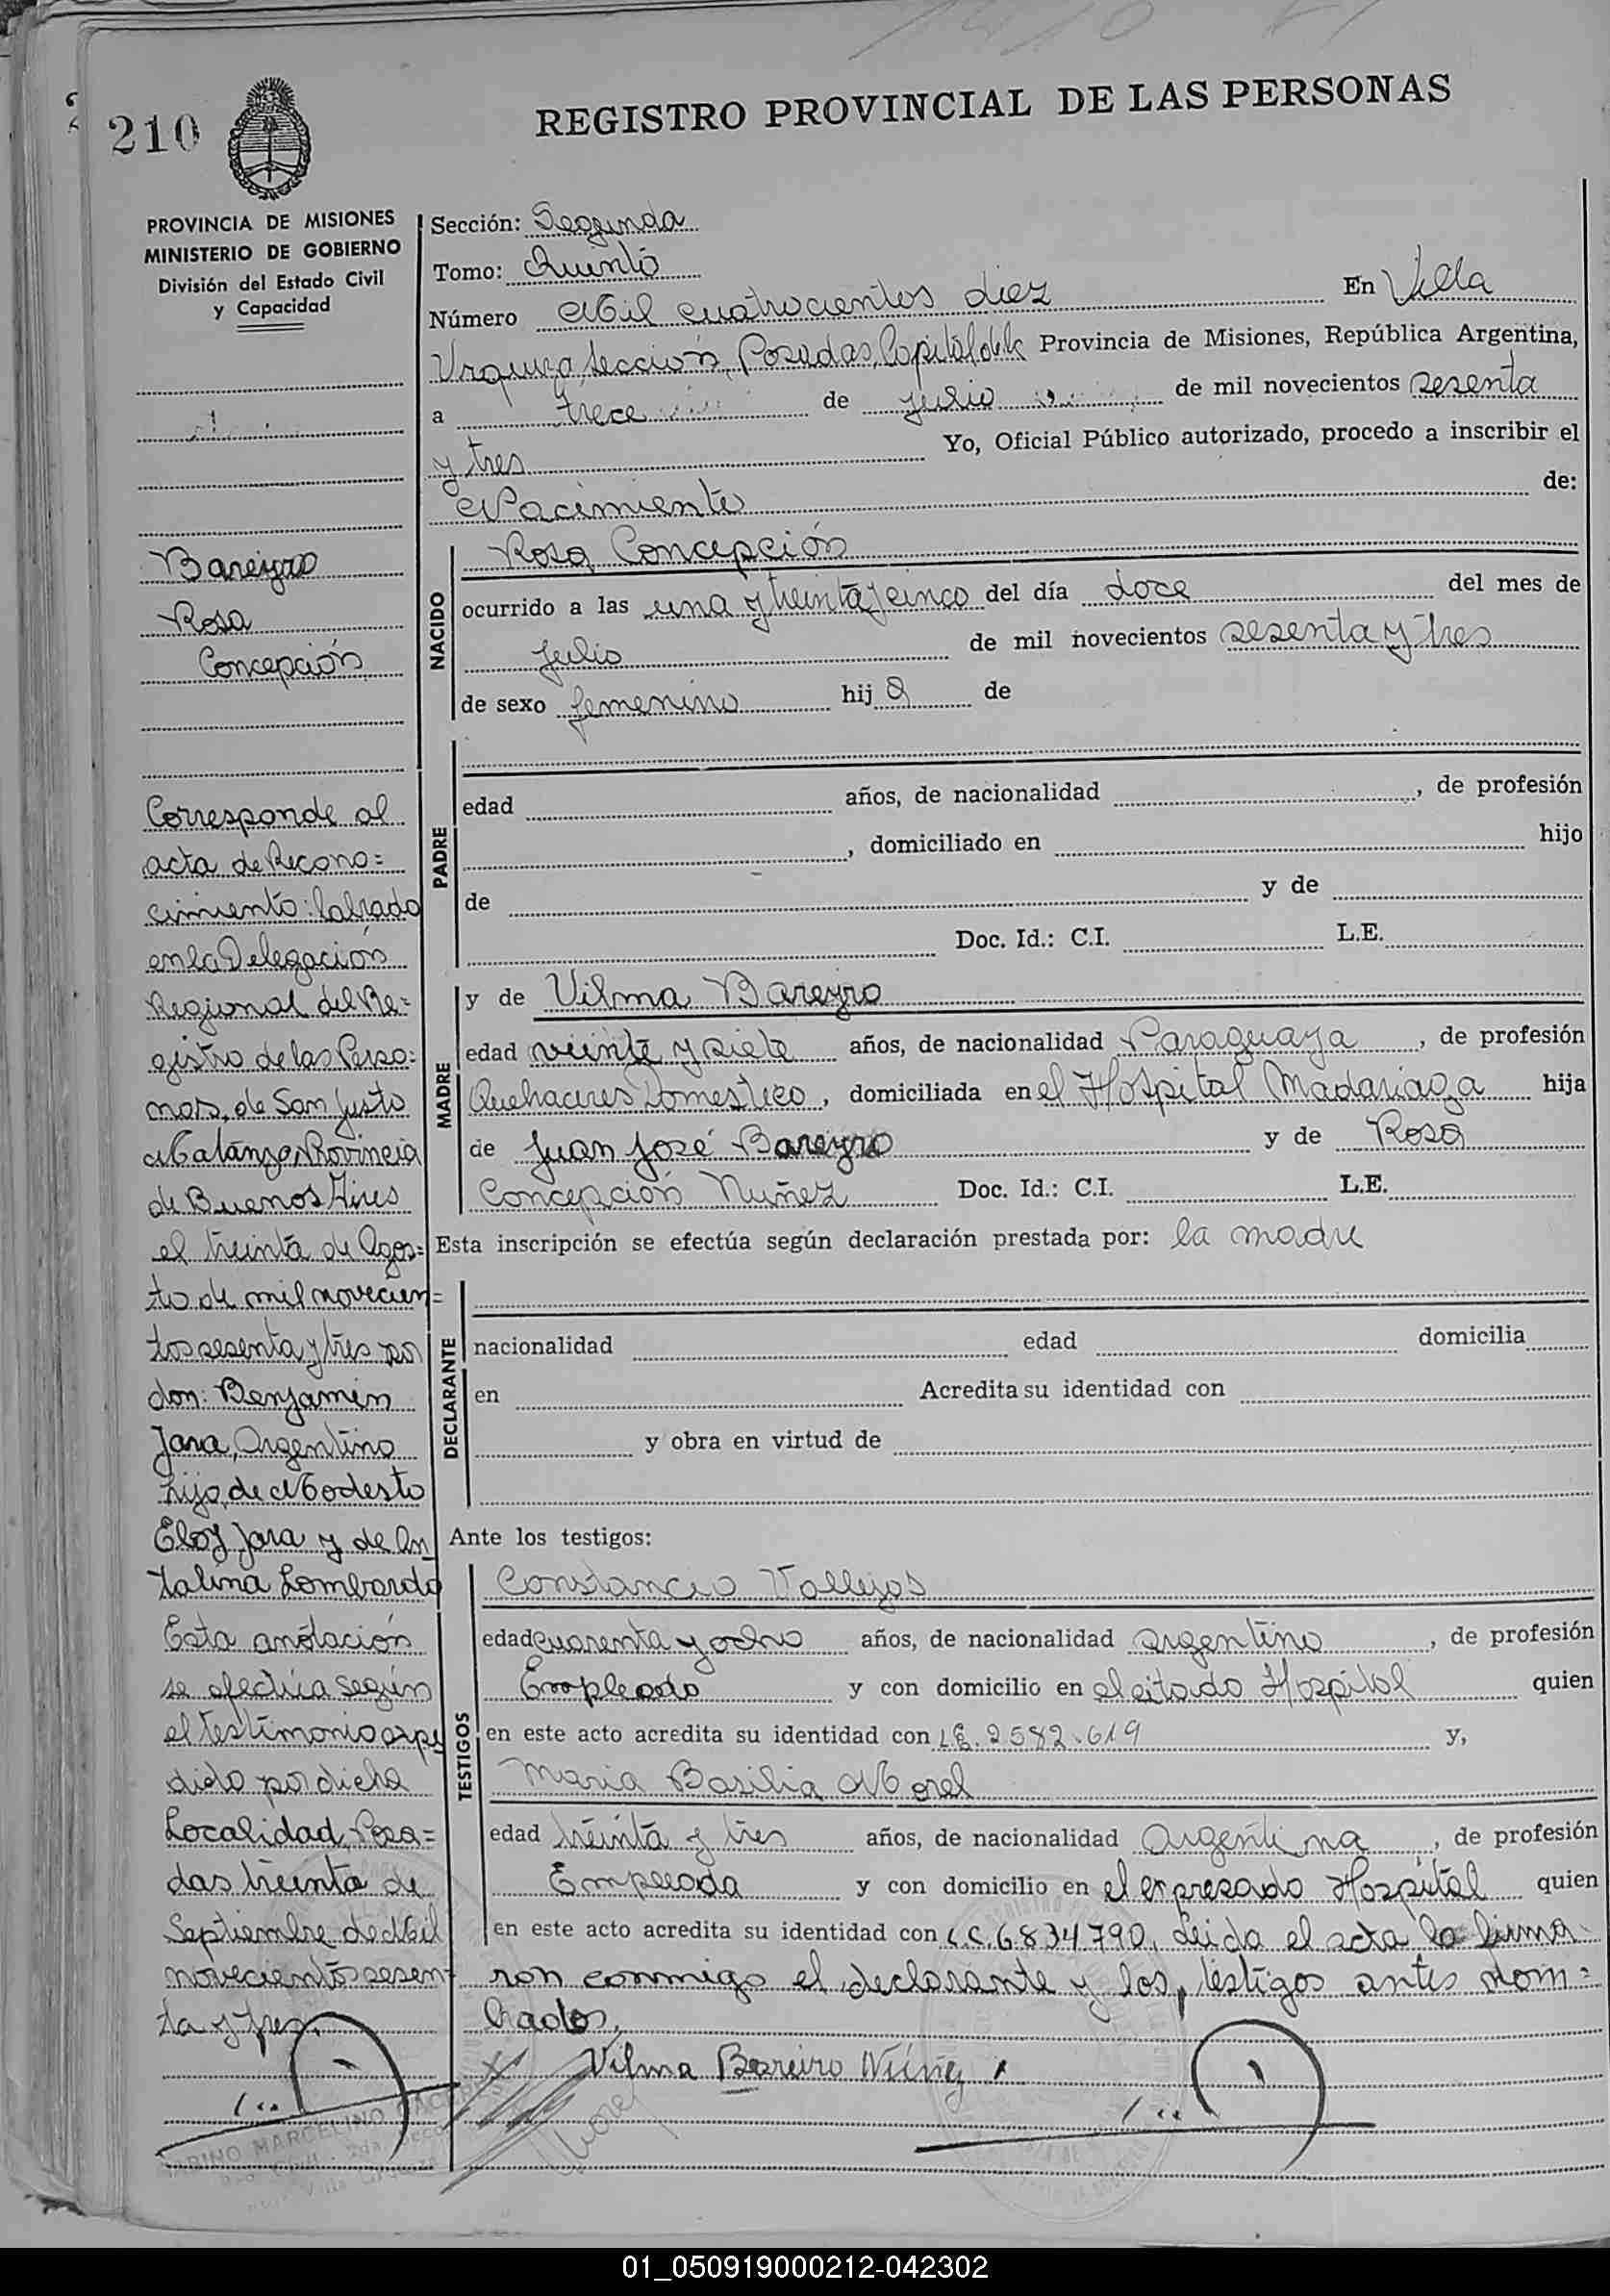 210
REGISTRO PROVINCIAL DE LAS PERSONAS
PROVINCIA DE MISIONES
MINISTERIO DE GOBIERNO
División del Estado Civil
y Capacidad
Bareyro
Rosa
Concepción
Corresponde al
acta de Recono=
cimiento: labrado
en la Delegación
Regional del Re=
gistro de las Perso=
nas, de San Justo
Matanza, Provincia
de Buenos Aires
el treinta de Agos=
to de mil novecien=
tos sesenta y tres po
don: Benjamin
Jara, Argentino
hijo, de Modesto
Eloy Jara y de
talina Lombardo
Esta anotación
se efectúa según
el testimonio expe
dido por dicha
Localidad, Posa=
das treinta de
Septiembre de Mil
novecientos sesen=
ta y tres.
Sección: Segunda
Tomo: Quinto
Número Mil cuatrocientos diez En Villa
Urquiza, sección, Posadas, Capital de la Provincia de Misiones, República Argentina,
a trece de julio de mil novecientos sesenta
y tres Yo, Oficial Público autorizado, procedo a inscribir el
Nacimiento de:
NACIDO
Rosa Concepción
ocurrido a las una y treinta y cinco del día doce del mes de
julio de mil novecientos sesenta y tres
de sexo femenino hij a de
PADRE
edad años, de nacionalidad , de profesión
, domiciliado en hijo
de y de
Doc. Id.: C.I. L.E.
MADRE
y de Vilma Bareyro
edad veinte y siete años, de nacionalidad Paraguaya , de profesión
Quehaceres Domestico, domiciliada en el Hospital Madariaga hija
de Juan José Bareyro y de Rosa
Concepción Nuñez Doc. Id.: C.I. L.E.
Esta inscripción se efectúa según declaración prestada por: la madre
DECLARANTE
nacionalidad edad domicilia
en Acredita su identidad con
y obra en virtud de
Ante los testigos:
TESTIGOS
Constancio Vallejos
edad cuarenta y ocho años, de nacionalidad argentino , de profesión
Empleado y con domicilio en el citado Hospital quien
en este acto acredita su identidad con L.E. 2582.619 y,
Maria Basilia Morel
edad treinta y tres años, de nacionalidad Argentina , de profesión
Empleada y con domicilio en el expresado Hospital quien
en este acto acredita su identidad con L.C. 6.834.790, Leida el acta la firma
ron conmigo el declarante y los testigos antes nom=
brados.
Vilma Bareiro Núñez
Morel
MARCELINO
01_050919000212-042302